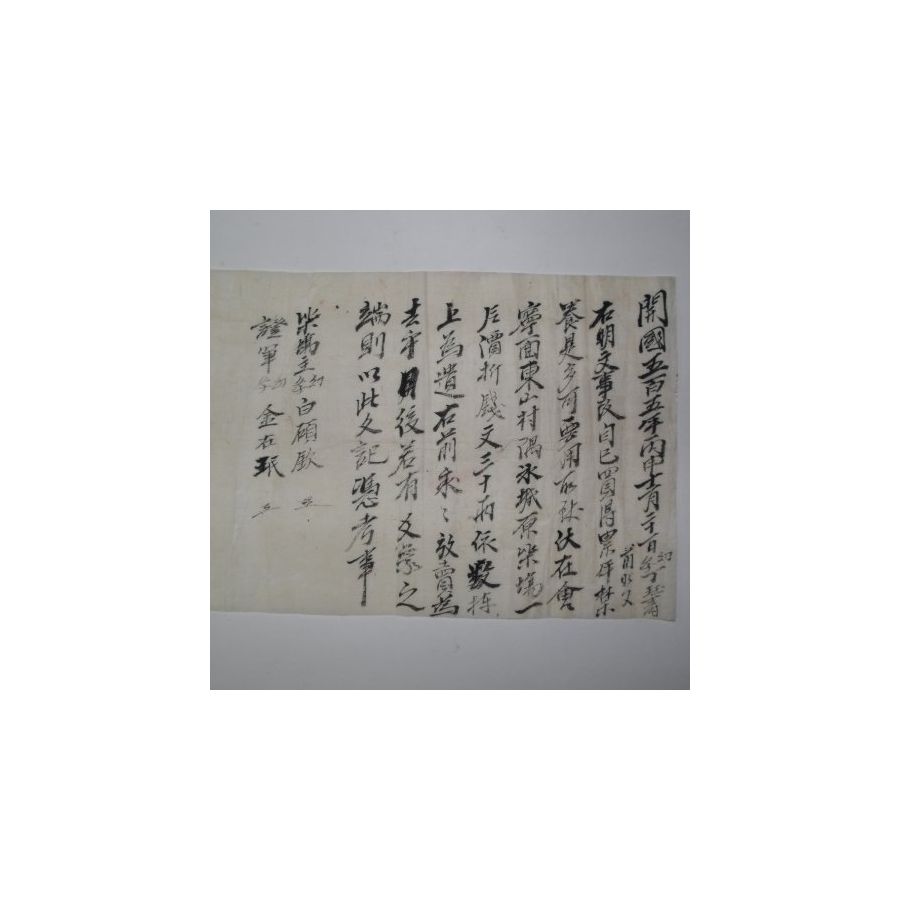 開國五百五年丙申十一月二十一日幼丁
前明文
右明文事段自己買得累年禁
養是多可要用所致伏在會
寧面東山村隅氷城原柴場一
庄價折錢文三十兩依數捧
上為遣右前永永放賣為
去乎日後若有文蒙之
端則以此文記憑考事
柴場主幼白碩歡
證筆幼金在珉